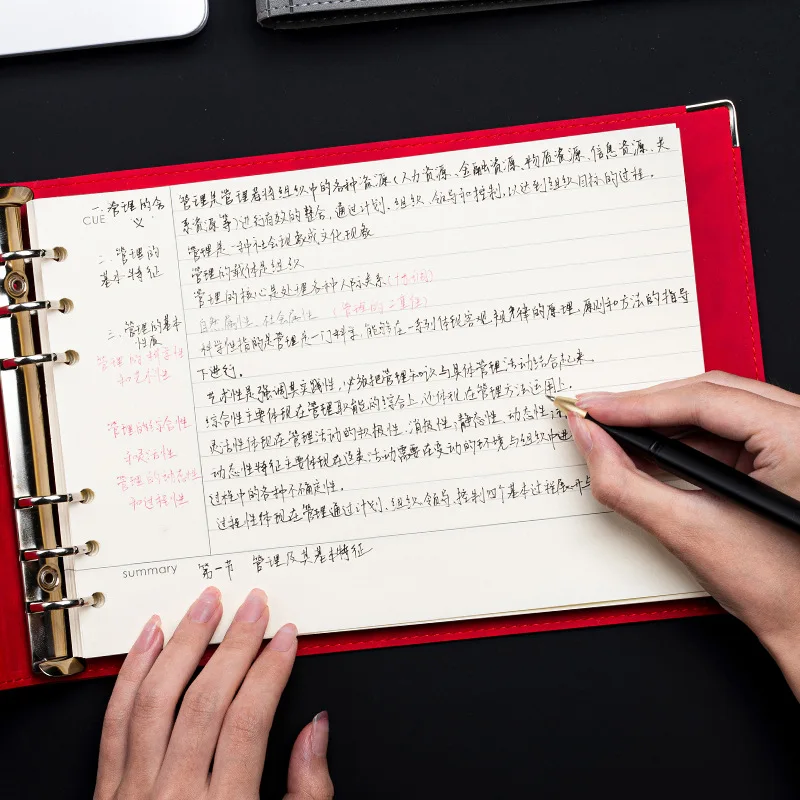 一.管理的含
CUE 义
二.管理的
基本特征
三.管理的基本
性质
管理的科学性
和艺术性
管理的综合性
和灵活性
管理的动态性
和过程性
管理是管理者将组织中的各种资源(人力资源、金融资源、物质资源、信息资源、关
系资源等)进行有效的整合,通过计划、组织、领导和控制,以达到组织目标的过程。
管理是一种社会现象或文化现象
管理的载体是组织
管理的核心是处理各种人际关系
自然属性、社会属性 (管理的二重性)
科学性指的是管理是一门科学,能够在一系列体现客观规律的原理、原则和方法的指导
下进行。
艺术性是强调其实践性,必须把管理知识与具体管理活动结合起来
综合性主要体现在管理职能的综合上,还体现在管理方法运用上.
灵活性体现在管理活动的积极性、消极性、静态性、动态性
动态性特征主要体现在这类活动需要在变动的环境与组织中进
过程中的各种不确定性.
过程性体现在管理通过计划、组织、领导、控制四个基本过程展开
summary 第一节 管理及其基本特征